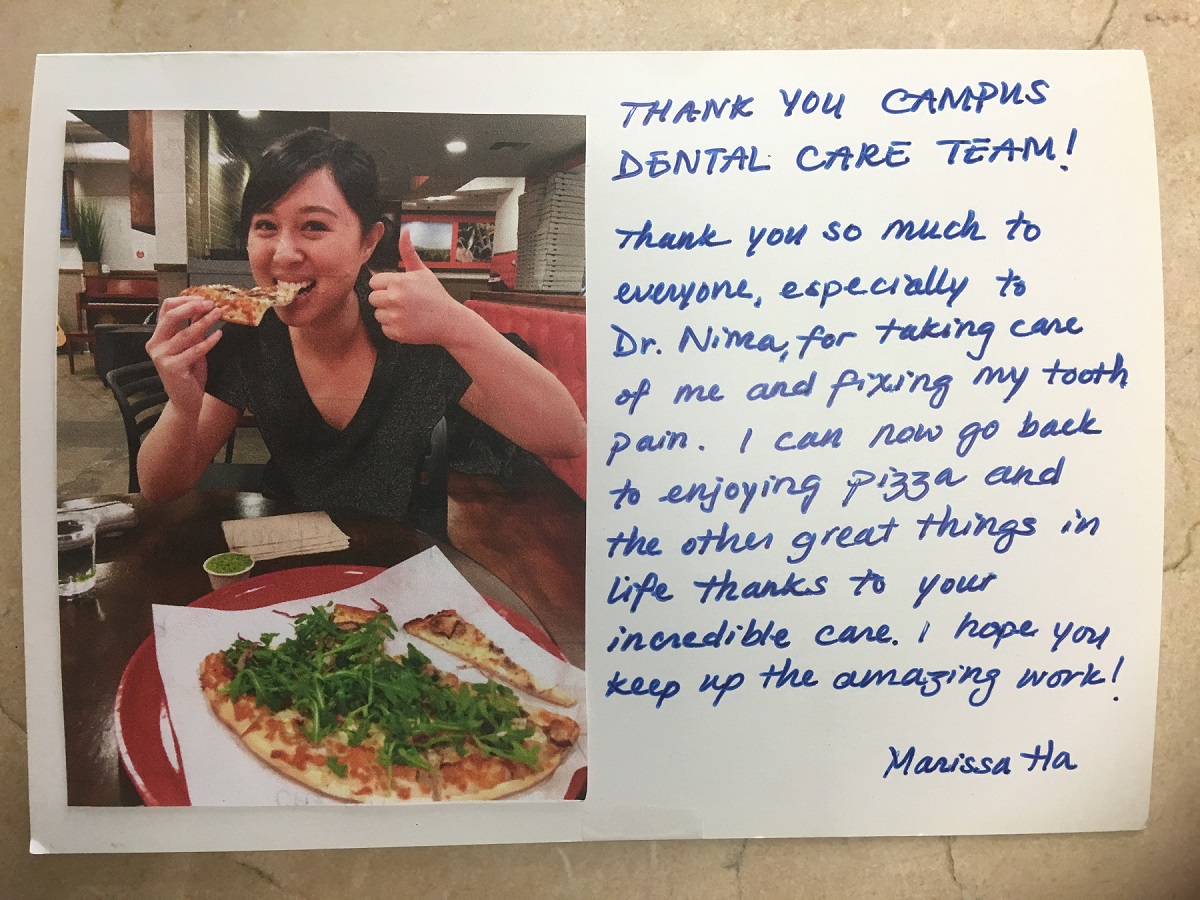 THANK YOU CAMPUS
DENTAL CARE TEAM!
Thank you so much to
everyone, especially to
Dr. Nima, for taking care
of me and fixing my tooth
pain. I can now go back
to enjoying pizza and
the other great things in
life thanks to your
incredible care. I hope you
keep up the amazing work!
Marissa Ha